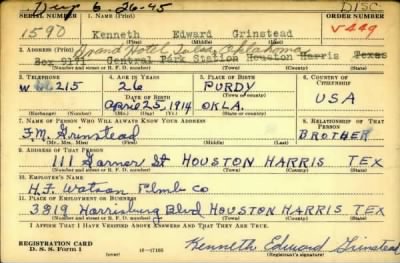 Dup 6-26-45 DISC.
SERIAL NUMBER 1. NAME (Print) ORDER NUMBER
1590 Kenneth Edward Grinstead V449
(First) (Middle) (Last)
2. ADDRESS (Print) Grand Hotel Tulsa, Oklahoma
Box 9171 Central Park Station Houston Harris Texas
(Number and street or R. F. D. number) (Town) (County) (State)
3. TELEPHONE 4. AGE IN YEARS 5. PLACE OF BIRTH 6. COUNTRY OF CITIZENSHIP
W 215 26 PURDY
DATE OF BIRTH (Town or county) USA
April 25, 1914 OKLA.
(Exchange) (No.) (Mo.) (Day) (Yr.) (State or country)
7. NAME OF PERSON WHO WILL ALWAYS KNOW YOUR ADDRESS 8. RELATIONSHIP OF THAT PERSON
F.M. Grinstead BROTHER
(Mr., Mrs., Miss) (First) (Middle) (Last)
9. ADDRESS OF THAT PERSON
111 Garner St HOUSTON HARRIS TEX
(Number and street or R. F. D. number) (Town) (County) (State)
10. EMPLOYER'S NAME
H.F. Watson Plmb Co
11. PLACE OF EMPLOYMENT OR BUSINESS
3819 Harrisburg Blvd HOUSTON HARRIS TEX
(Number and street or R. F. D. number) (Town) (County) (State)
I AFFIRM THAT I HAVE VERIFIED ABOVE ANSWERS AND THAT THEY ARE TRUE.
REGISTRATION CARD
D. S. S. Form 1 16-17105 Kenneth Edward Grinstead
(Registrant's signature)